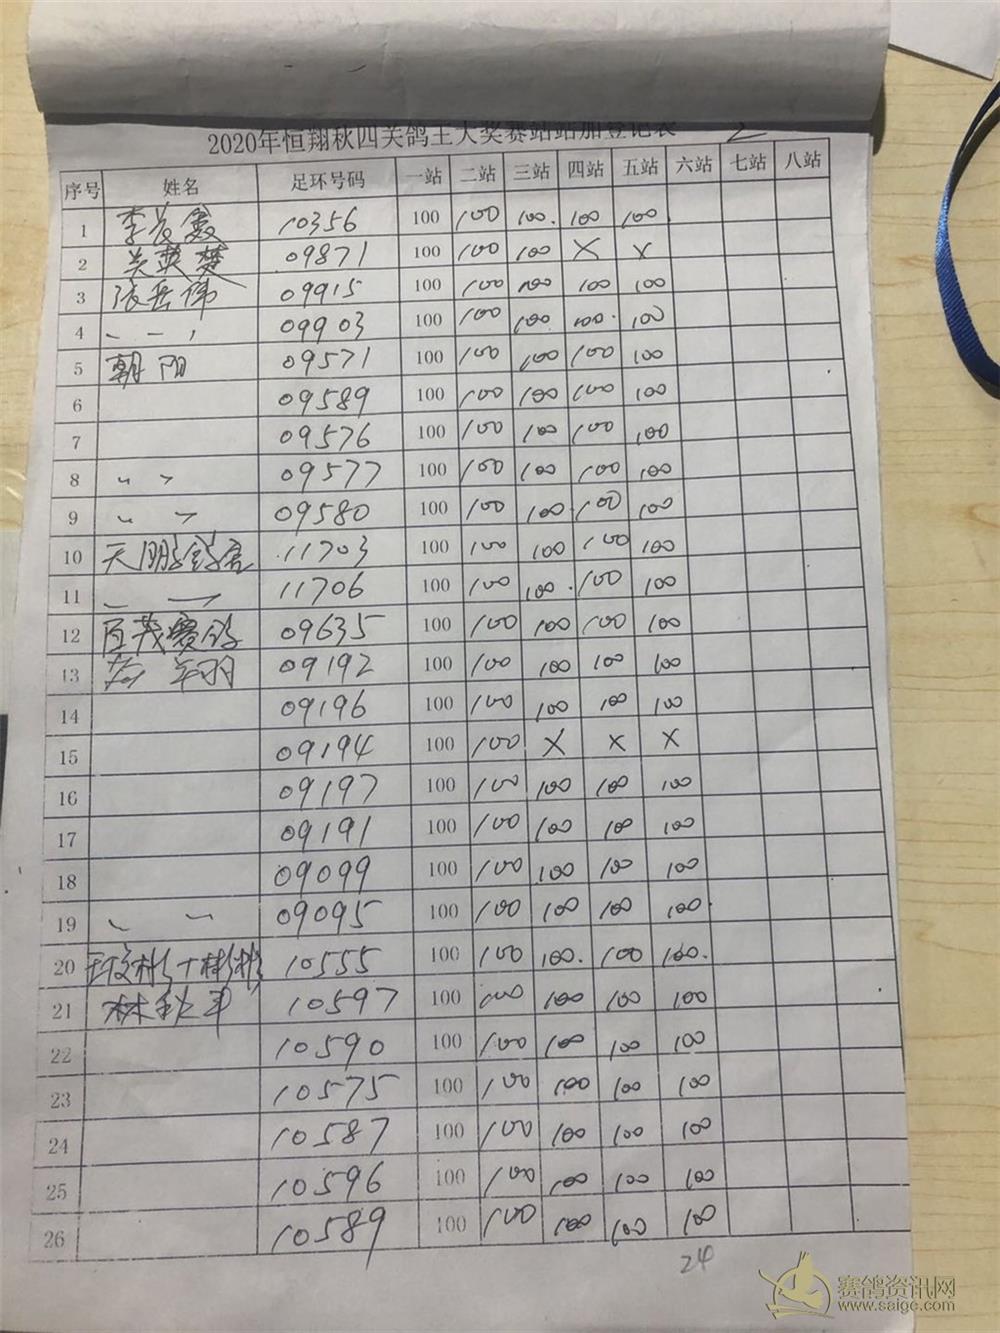 2020年恒翔秋四关鸽王大奖赛站站加登记表 2
序号 姓名 足环号码 一站 二站 三站 四站 五站 六站 七站 八站
1 10356 100 100 100. 100 100
2 关英楚 09871 100 100 100 X X
3 张岳伟 09915 100 100 100 100 100
4 09903 100 100 100 100. 100
5 朝阳 09571 100 100 100 100 100
6 09589 100 100 100 100 100
7 09576 100 100 100 100 100
8 09577 100 100 100 100 100
9 09580 100 100 100 100 100
10 天鹏鸽舍 11703 100 100 100 100 100
11 11706 100 100 100 100 100
12 百战赛鸽 09635 100 100 100 100 100
13 09192 100 100 100 100 100
14 09196 100 100 100 100 100
15 09194 100 100 X X X
16 09197 100 100 100 100 100
17 09191 100 100 100 100 100
18 09099 100 100 100 100 100
19 09095 100 100 100 100 100
20 10555 100 100 100. 100 100.
21 林秋平 10597 100 100 100 100 100
22 10590 100 100 100 100 100
23 10575 100 100 100 100 100
24 10587 100 100 100 100 100
25 10596 100 100 100 100 100
26 10589 100 100 100 100 100
24
赛鸽资讯网
www.saige.com